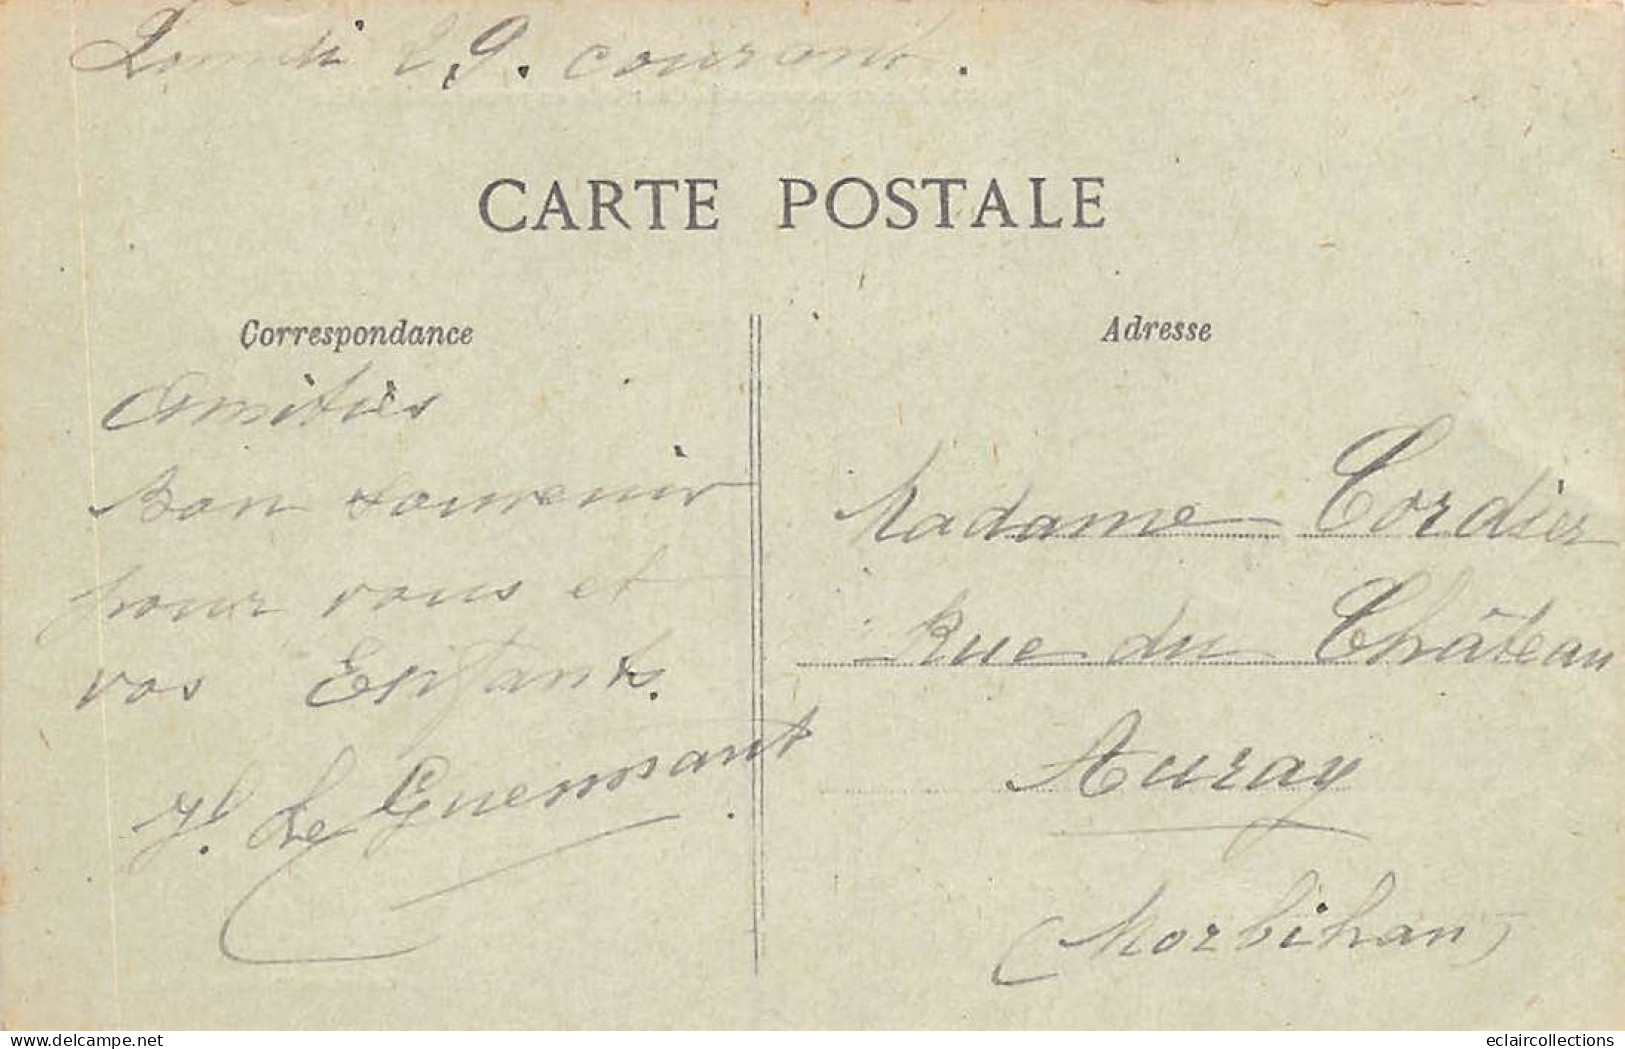 Lundi 29. courant.
CARTE POSTALE
Correspondance
Amitiés
Bon souvenir
pour vous et
vos Enfants.
Le Guennant
Adresse
Madame Cordier
Rue du Château
Auray
(Morbihan)
delcampe.net
eclaircollections